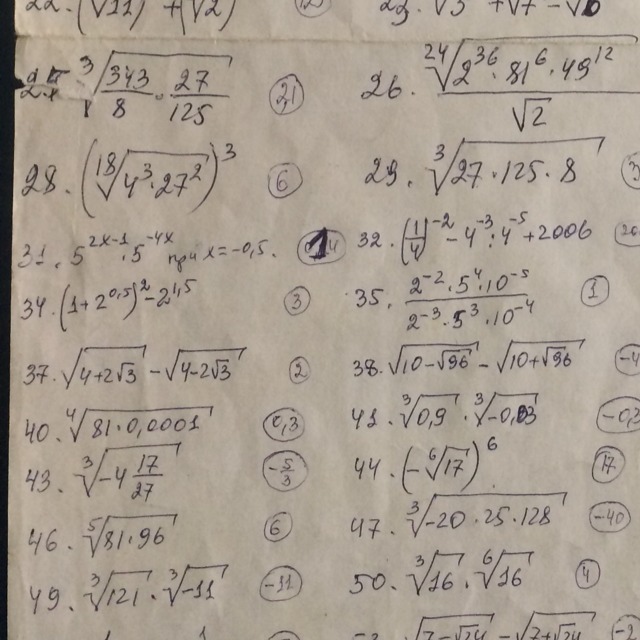 22. (√11) + (√2)
23. √3 + √7 -
25. ∛(343/8 · 27/125) 21
26. ²⁴√(2³⁶ · 81⁶ · 49¹²) / √2
28. (¹⁸√(4³ · 27²))³ 6
29. ∛(27 · 125 · 8)
31. 5²ˣ⁻¹ · 5⁻⁴ˣ при x = -0,5. 1
32. (1/4)⁻² - 4⁻³ : 4⁻⁵ + 2006
34. (1 + 2^0,5)² - 2^1,5 3
35. (2⁻² · 5⁴ · 10⁻⁵) / (2⁻³ · 5³ · 10⁻⁴) 1
37. √(4 + 2√3) - √(4 - 2√3) 2
38. √(10 - √96) - √(10 + √96) -4
40. ∜(81 · 0,0001) 0,3
41. ∛0,9 · ∛-0,03 -0,3
43. ∛(-4 17/27) -5/3
44. (-⁶√17)⁶ 17
46. ⁵√(81 · 96) 6
47. ∛(-20 · 25 · 128) -40
49. ∛121 · ∛-11 -11
50. ∛16 · ⁶√16 4
√(7 - √24) - √(7 + √24)